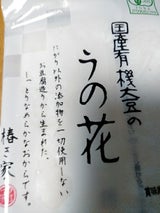 国産有機大豆の
うの花
にがり以外の添加物を一切使用しない
お豆腐造りから生まれた、
しっとりなめらかなおからです。
椿き家
賞味期